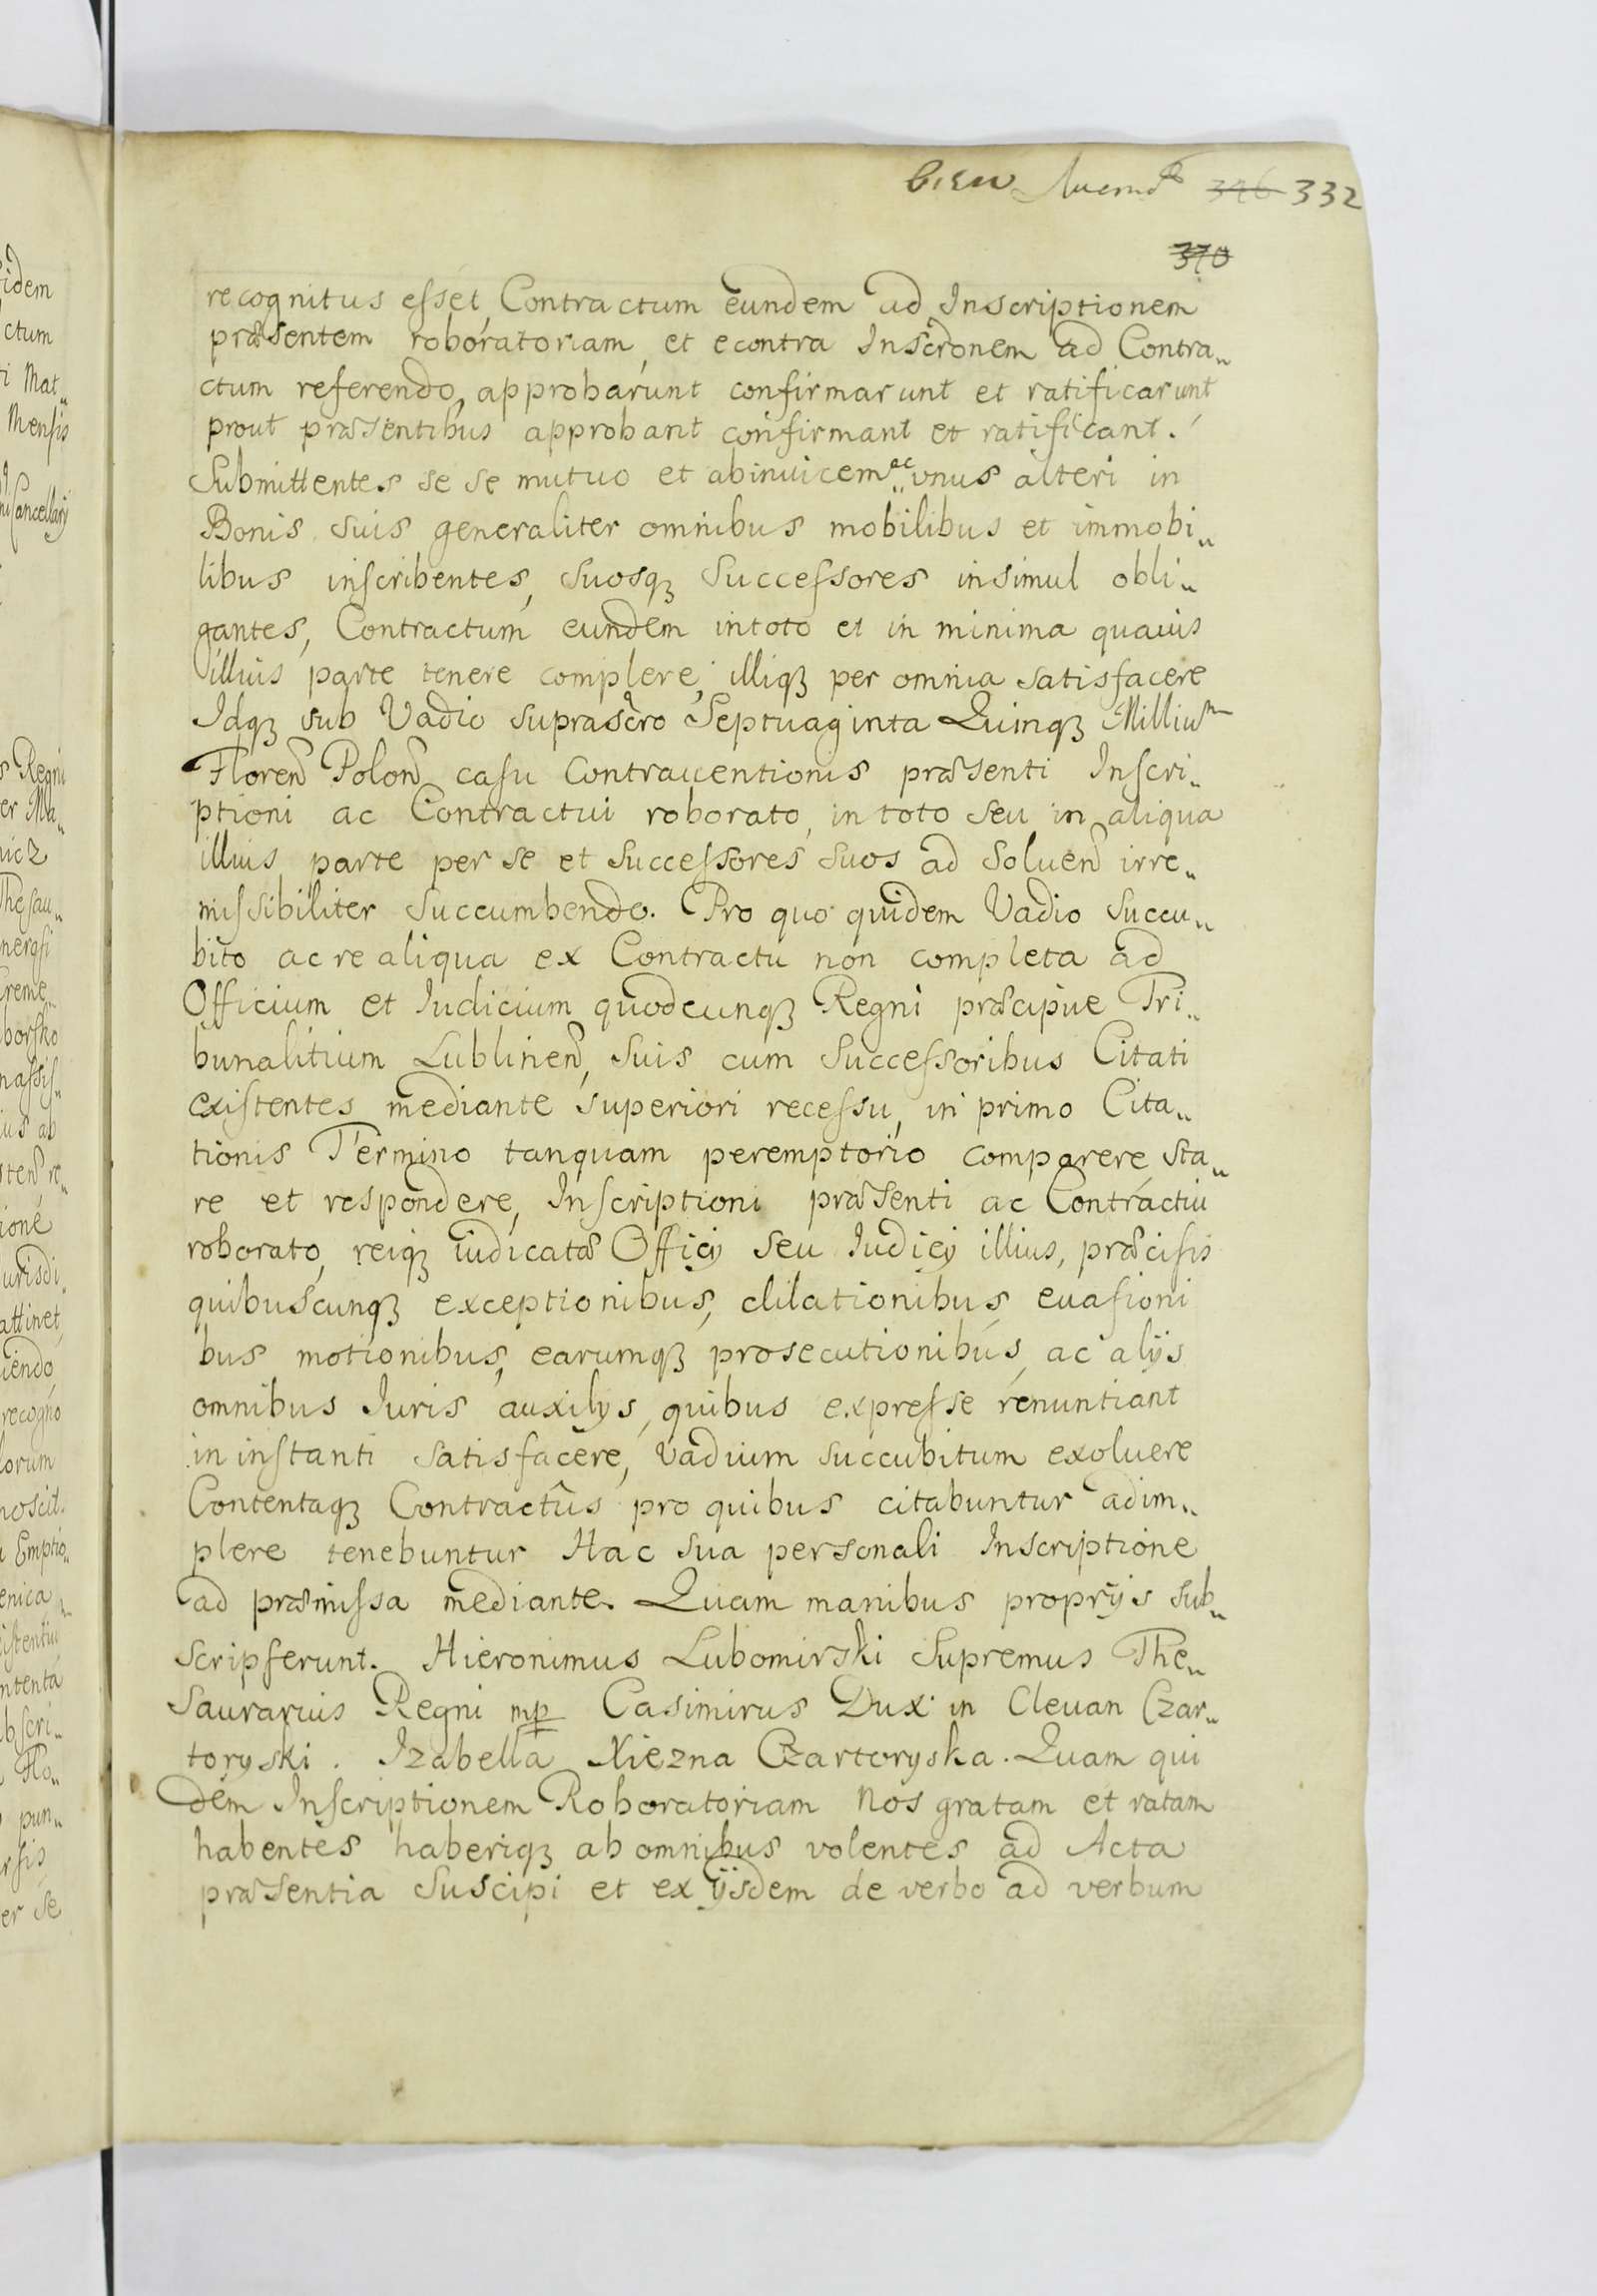 332
370
recognitus esset, Contractum eundem ad Inscriptionem
præsentem roboratoriam, et econtra Inscrōnem ad Contra„
ctum referendo, approbarunt confirmarunt et ratificarunt
prout præsentibus approbant confirmant et ratificant.
Submittentes se se mutuo et abinuicem ac unus alteri in
Bonis suis generaliter omnibus mobilibus et immobi„
libus inscribentes, suosqꝫ Successores insimul obli„
gantes, Contractum eundem in toto et in minima quauis
illius parte tenere complere, illiqꝫ per omnia satisfacere
Idqꝫ sub Vadio suprascro Septuaginta Quinqꝫ Milliu͠m
Floren Polon casu contrauentionis præsenti Inscri„
ptioni ac Contractui roborato, in toto seu in aliqua
illius parte per se et Successores suos ad soluen irre„
missibiliter succumbendo. Pro quo quidem Vadio succu„
bito ac re aliqua ex Contractu non completa ad
Officium et Iudicium quodcunqꝫ Regni præcipue Tri„
bunalitium Lublinen, suis cum Successoribus Citati
existentes mediante superiori recessu, in primo Cita„
tionis Termino tanquam peremptorio comparere, sta„
re et respondere, Inscriptioni præsenti ac Contractui
roborato, reiqꝫ iudicatæ Officij seu Iudicij illius, præcisis
quibuscunqꝫ exceptionibus, dilationibus, euasioni
bus motionibus, earumqꝫ prosecutionibus, ac alijs
omnibus Iuris auxilijs, quibus expresse renuntiant
in instanti satisfacere, Vadium succubitum exoluere
Contentaqꝫ Contractûs pro quibus citabuntur adim„
plere tenebuntur Hac sua personali Inscriptione
ad præmissa mediante. Quam manibus proprijs sub„
scripserunt. Hieronimus Lubomirski Supremus The„
saurarius Regni mp Casimirus Dux in Cleuan Czar„
toryski. Izabella Xiezna Czartoryska. Quam qui
dem Inscriptionem Roboratoriam Nos gratam et ratam
habentes haberiqꝫ ab omnibus volentes ad Acta
præsentia suscipi et ex ijsdem de verbo ad verbum